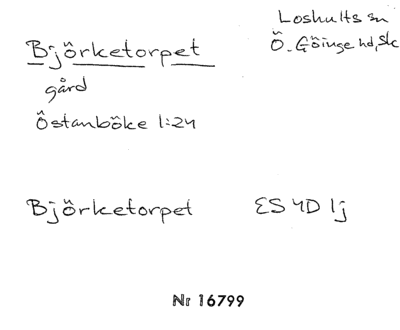 Loshults sn
Björketorpet
Ö. Göinge hd, Sk
gård
Östanböke 1:24
Björketorpet ES 4D 1j
Nr 16799